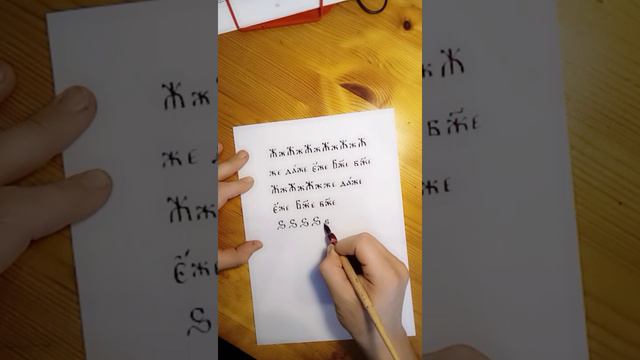 ЖжЖжЖжЖжЖжЖ
же да́же є҆́же Бж҃е бж҃е
ЖжЖжЖжже да́же
є҆́же Бж҃е бж҃е
Ѕ Ѕ Ѕ Ѕ ѕ